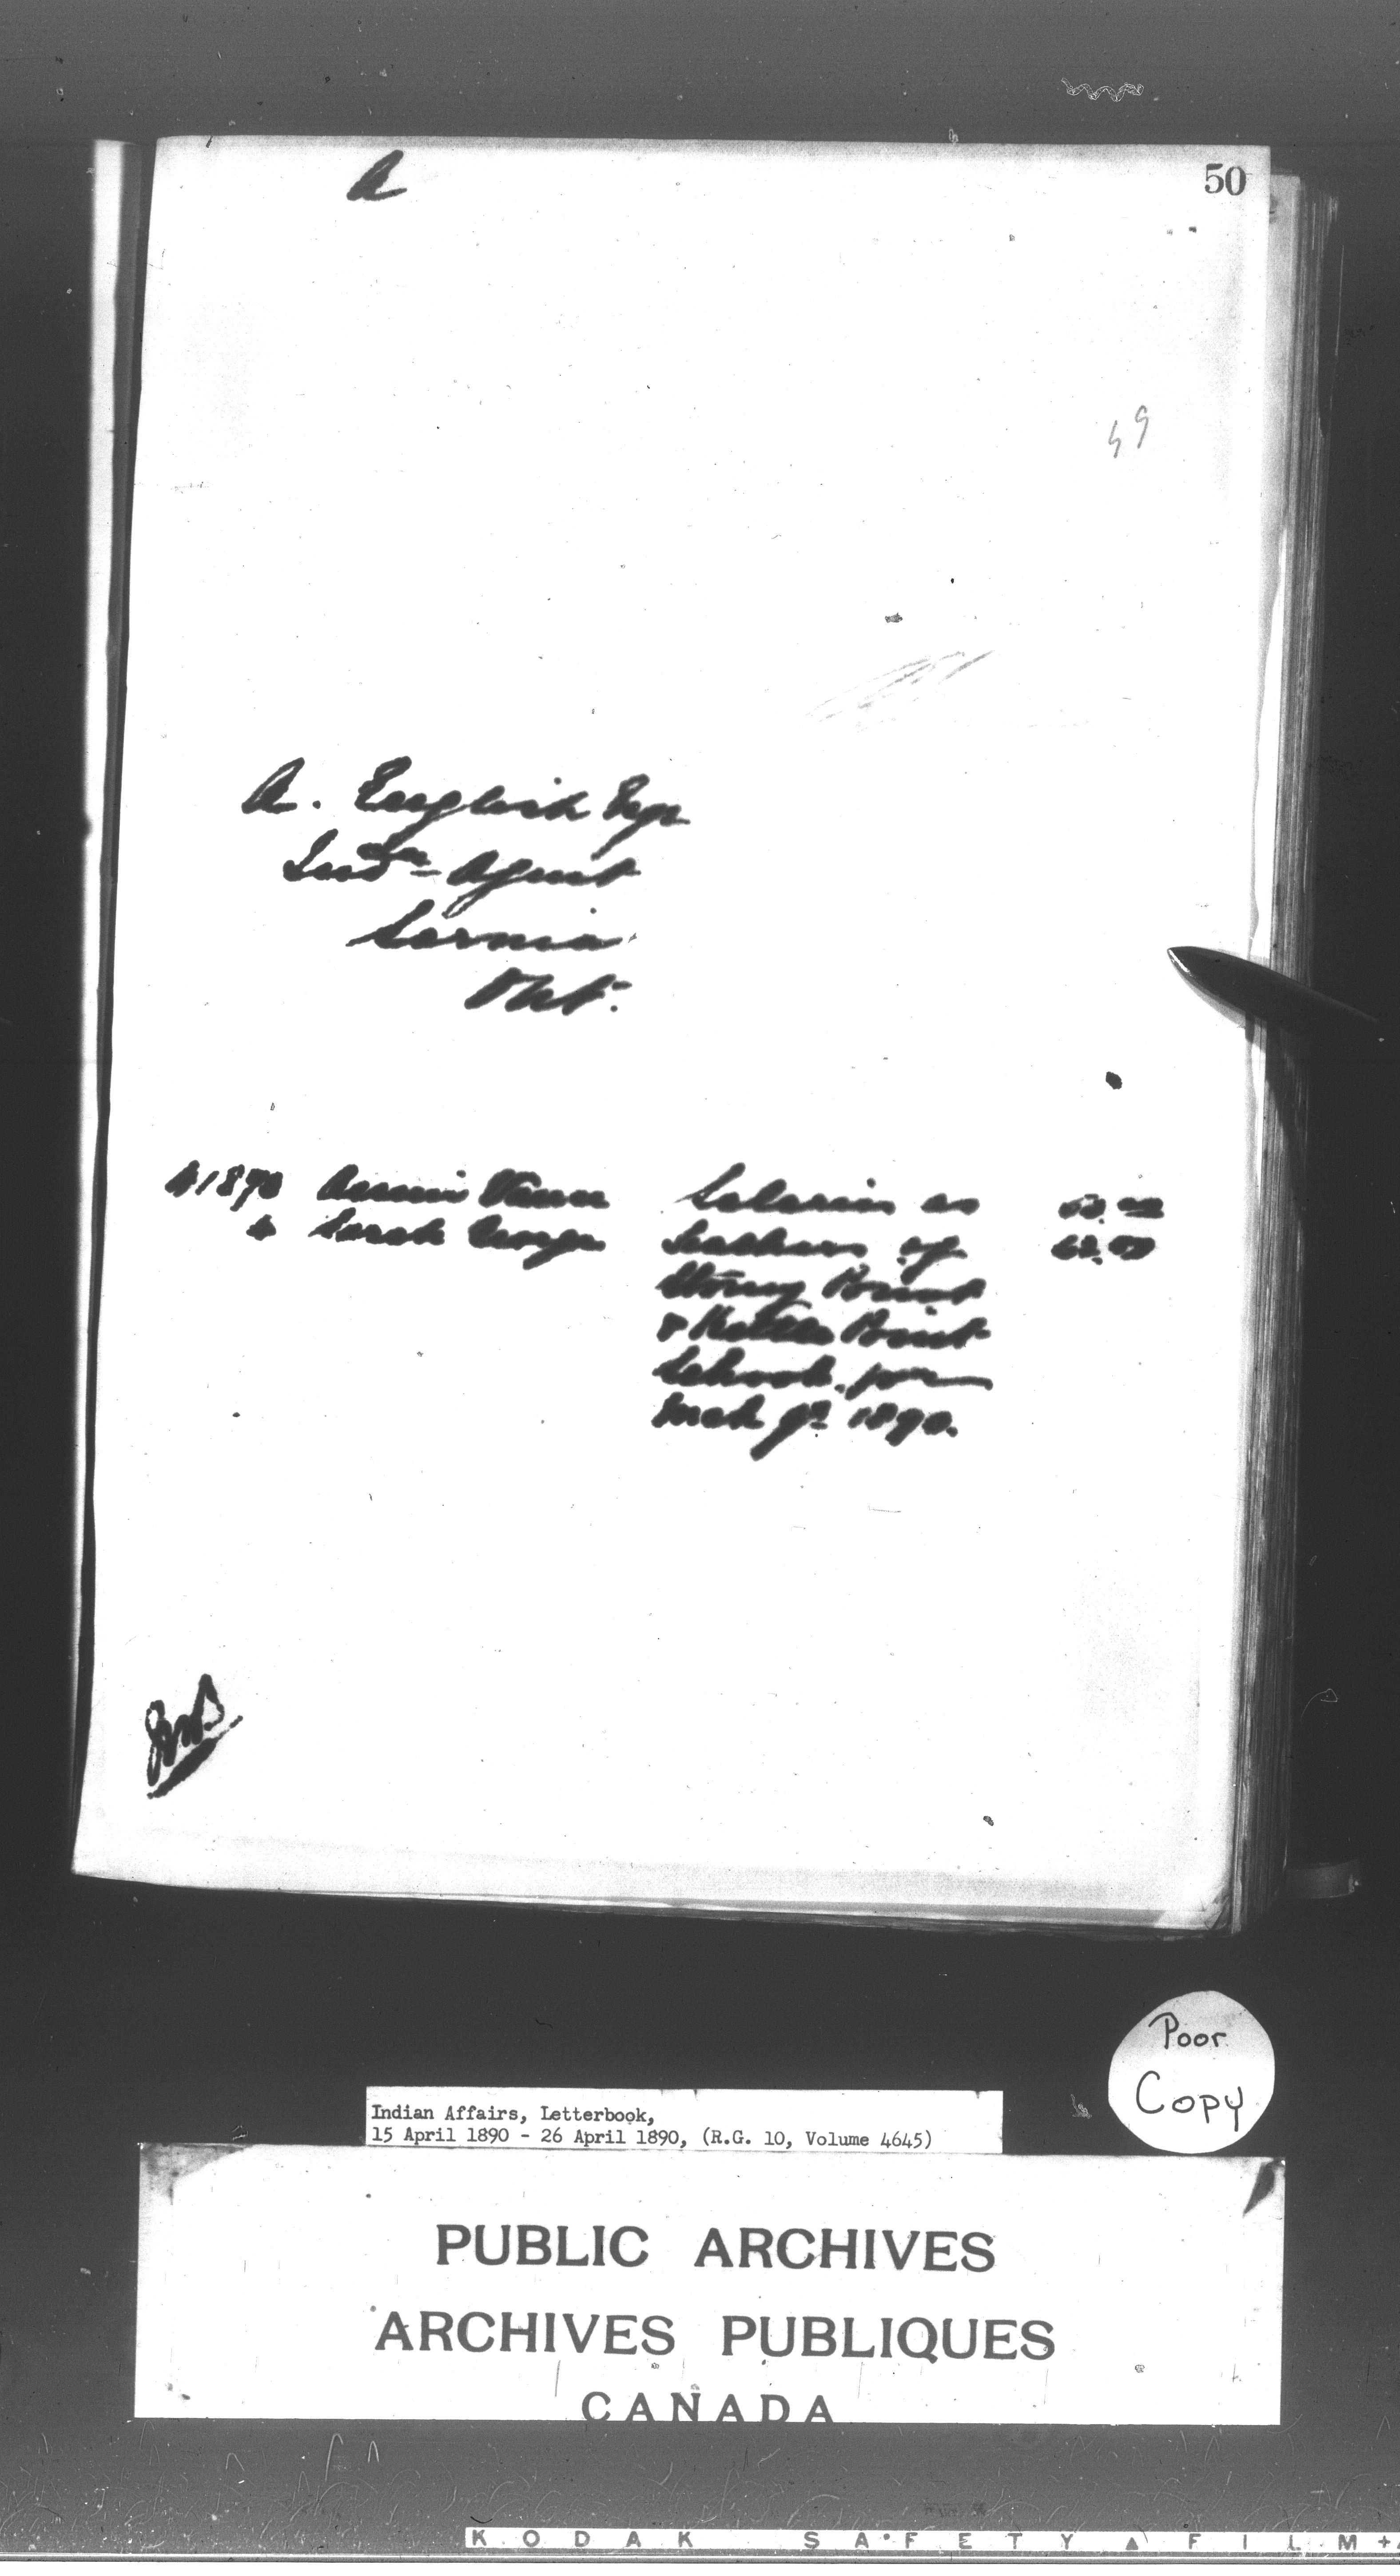 A
50
49
A. English Esqr
Indn Agent
Sarnia
Ont.
1890 Annie Vance Salaries as
& Sarah George teachers of 62.50
Stony Point
& Kettle Point
Schools for
Mch qr 1890.
Poor
Copy
Indian Affairs, Letterbook,
15 April 1890 - 26 April 1890, (R.G. 10, Volume 4645)
PUBLIC ARCHIVES
ARCHIVES PUBLIQUES
CANADA
KODAK SAFETY FILM